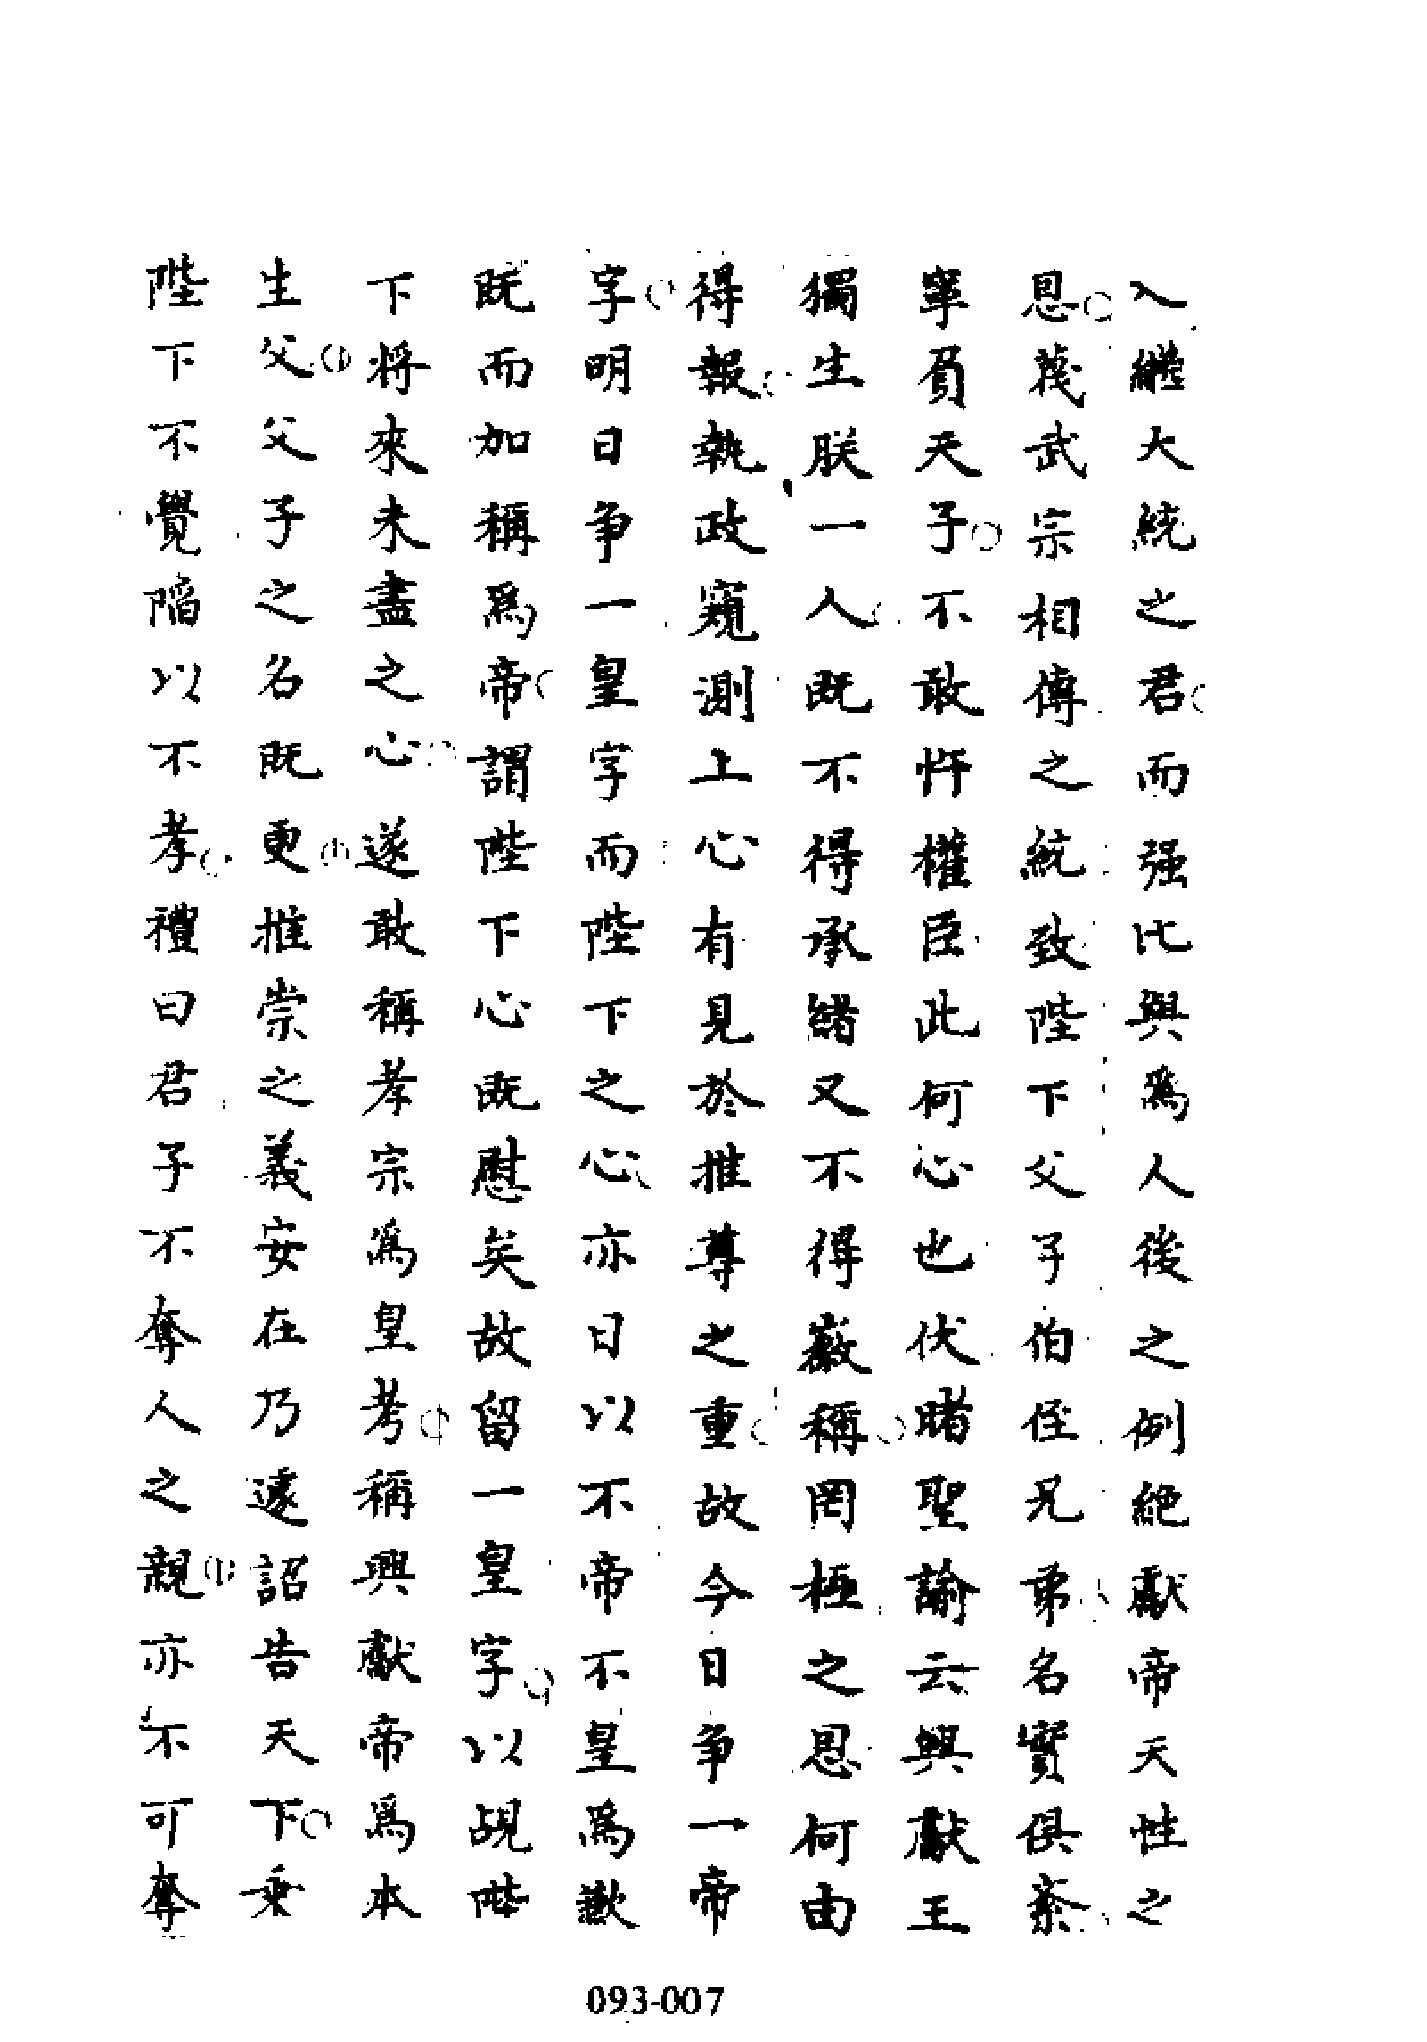 入繼大統之君而强比與爲人後之例絶獻帝天性之
恩蔑武宗相傳之統致陛下父子伯侄兄弟名實俱紊
寧負天子不敢忤權臣此何心也伏睹聖諭云興獻王
獨生朕一人既不得承緒又不得徽稱罔極之恩何由
得報執政窺測上心有見於推尊之重故今日爭一帝
字明日爭一皇字而陛下之心亦日以不帝不皇爲歉
既而加稱爲帝謂陛下心既慰矣故留一皇字以覘陛
下將來未盡之心遂敢稱孝宗爲皇考稱興獻帝爲本
生父父子之名既更推崇之義安在乃遽詔告天下乘
陛下不覺陷以不孝禮曰君子不奪人之親亦不可奪
093-007